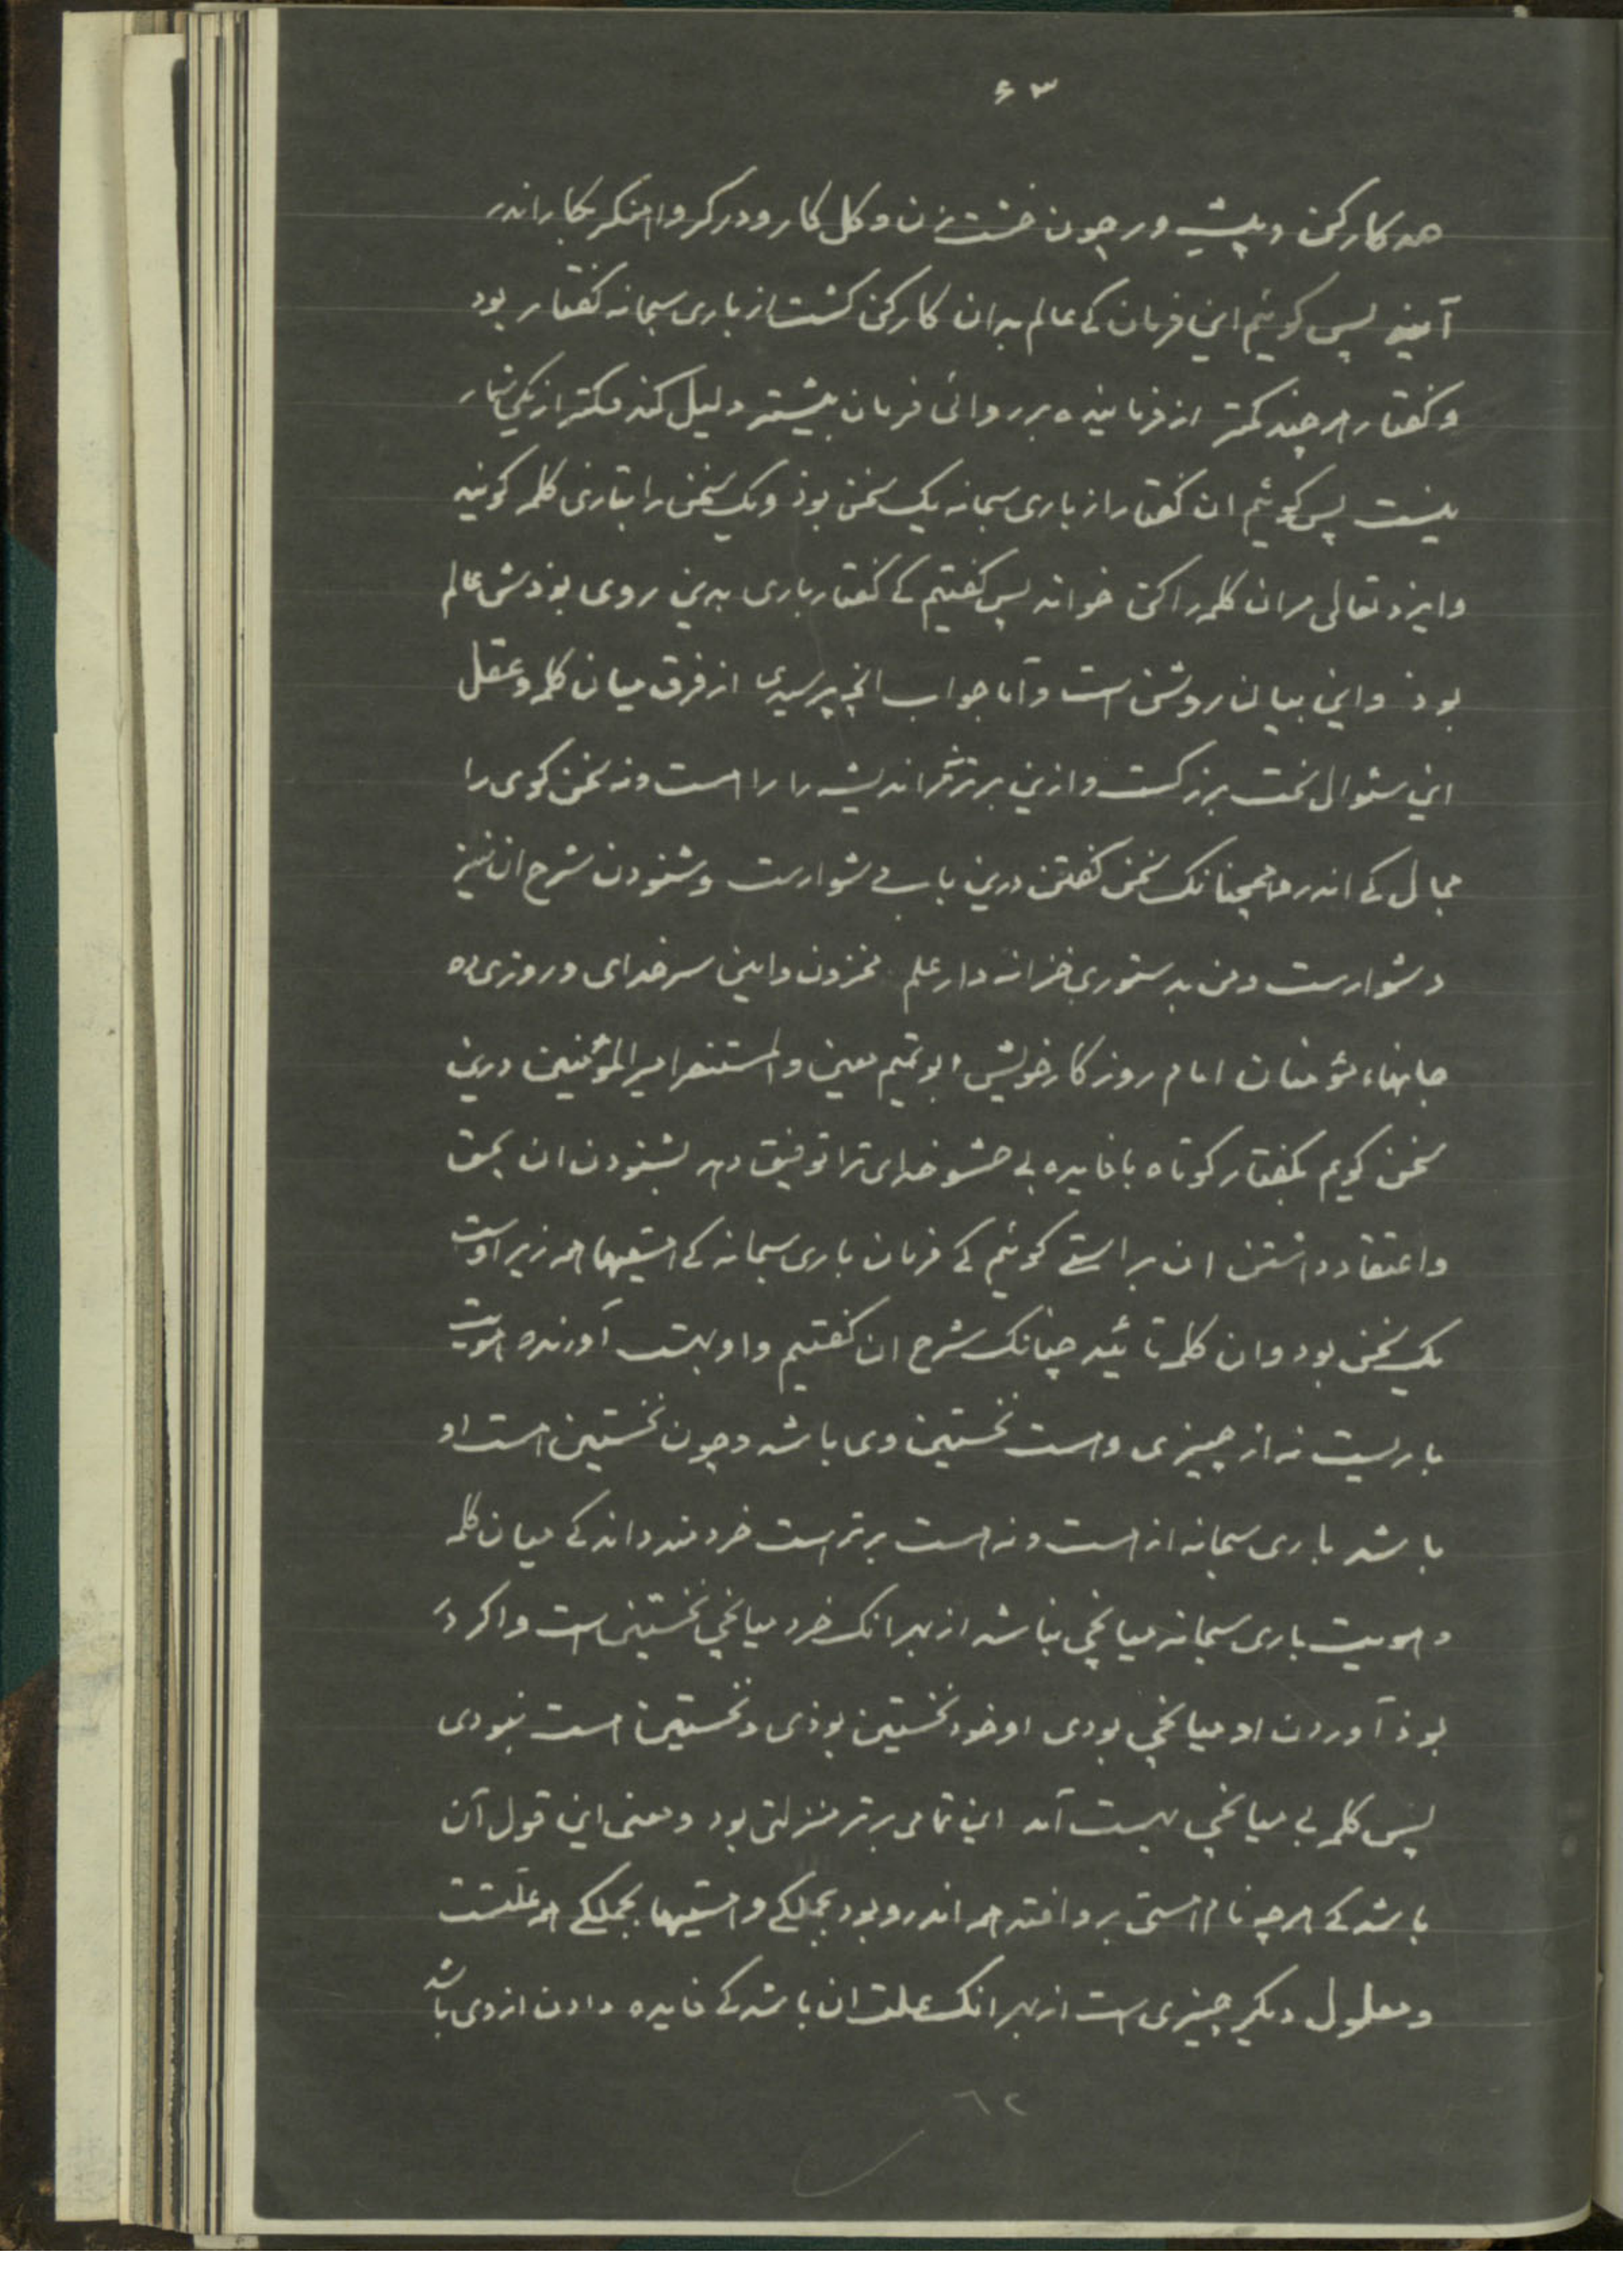 ۶۳
همه کارکن و پیشه ور چون خشت زن و کل کار و درکر و اهنکر بکار اندر
آیند پس کوئیم این فرمان کے عالم بدان کارکن کشت از باری سبحانه کفتار بود
و کفتار هر چند کمتر از فرماینده بر روائی فرمان بیشتر دلیل کند و کمتر از یکی شمار
نیست پس کوئیم ان کفتار از باری سبحانه یک سخن بوذ و یک سخن را بتازی کلمه کویند
و ایزد تعالی مران کلمه را کن خواند پس کفتیم کے کفتار باری بدین روی بودش عالم
بوذ و این بیان روشن است و آما جواب انچ پرسیدی از فرق میان کلمه و عقل
این سئوال سخت بزرکست و ازین برتر مر اندیشه را راه است و نه سخن کوی را
مجال کے اندر همچنانک سخن کفتن درین باب دشوارست و شنودن شرح ان نیز
دشوارست و من بدستوری خزانه دار علم مخزون و امین سر خدای و روزی ده
جانهاء مؤمنان امام روزکار خویش ابو تمیم معین و المستنصر امیر المؤمنین درین
سخن کویم بکفتار کوتاه با فایده بی حشو خدای ترا توفیق دهد بشنودن ان بحق
و اعتقاد داشتن ان براستے کوئیم کے فرمان باری سبحانه کے هستیها همه زیر اوست
یک سخن بود و ان کلمه تائید چنانک شرح ان کفتیم و او بهست آورنده هویت
باریست نه از چیزی و هست نخستین وی باشد و چون نخستین هست او
باشد باری سبحانه از هست و نه هست برترست خردمند داند کے میان کلمه
و هویت باری سبحانه میانجی نباشد از بهر انک خرد میانجی نخستین است و اکر در
بوذ آوردن او میانجی بودی او خود نخستین بوذی و نخستین هست نبودی
پس کلمه بی میانجی بهست آمد این تمامی برتر منزلتی بود و معنی این قول آن
باشد کے هرچه نام هستی برو افتد همه اندرو بود بجملکے و هستیها بجملکے همه علتست
و معلول دیکر چیزی است از بهر انک علت ان باشد کے فایده دادن از وی باشد
٦٢